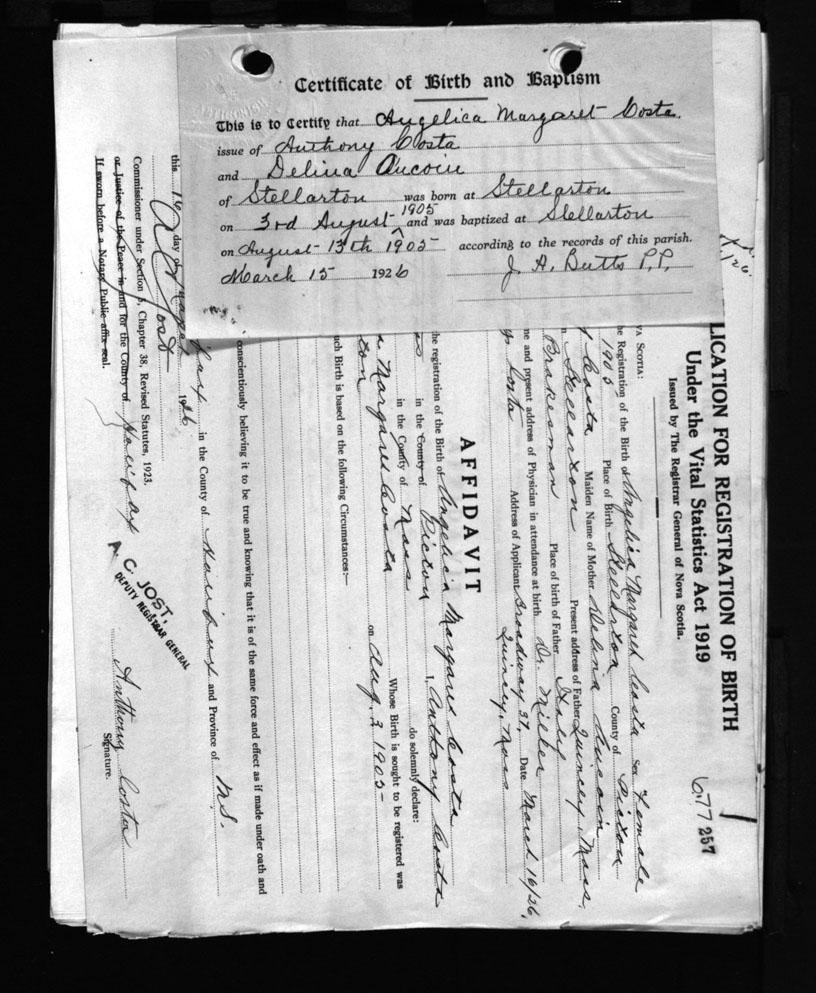 Certificate of Birth and Baptism
This is to Certify that Angelica Margaret Costa.
issue of Anthony Costa
and Delina Aucoin
of Stellarton was born at Stellarton
on 3rd August 1905 and was baptized at Stellarton
on August 13th 1905 according to the records of this parish.
March 15 1926 J. A. Butts P.P.
LICATION FOR REGISTRATION OF BIRTH
Under the Vital Statistics Act 1919
Issued by The Registrar General of Nova Scotia.
677 257
VA SCOTIA:
he Registration of the Birth of Angelica Margaret Costa Sex Female
1905 Place of Birth Stellarton County of Pictou
Costa Maiden Name of Mother Delina Aucoin
Stellarton Present address of Father Quincy, Mass.
Brakesman Place of birth of Father Italy
me and present address of Physician in attendance at birth Dr. Miller Date March 16/26.
Costa Address of Applicant Broadway St.
Quincy, Mass
AFFIDAVIT
he registration of the Birth of Angelica Margaret Costa
I, Anthony Costa
in the County of Pictou do solemnly declare:
in the County of Mass
Whose Birth is sought to be registered was
Margaret Costa on Aug. 3 1905
ton
uch Birth is based on the following Circumstances:—
conscientiously believing it to be true and knowing that it is of the same force and effect as if made under oath and
in the County of Halifax and Province of N.S.
this 16 day of 1926
A C Jost
Commissioner under Section 8, Chapter 38, Revised Statutes, 1923.
or Justice of the Peace in and for the County of Halifax
If sworn before a Notary Public affix seal.
A. C. JOST,
DEPUTY REGISTRAR GENERAL
Anthony Costa
Signature.